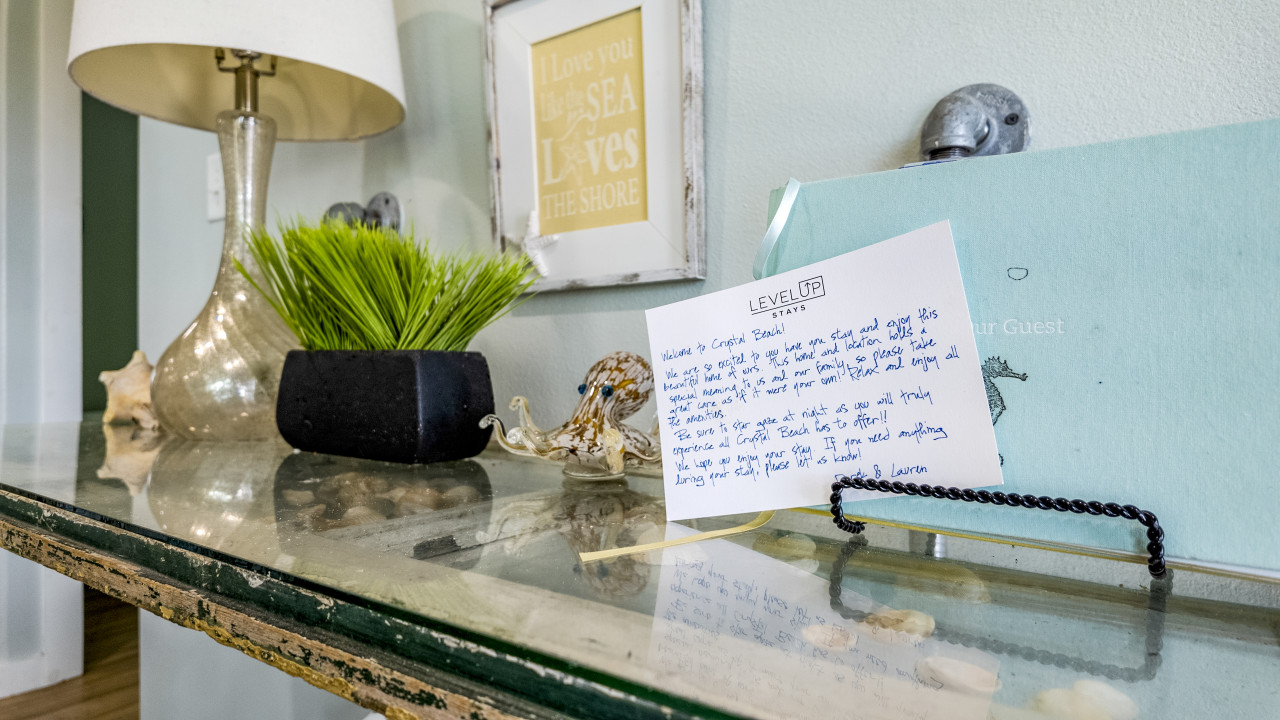 I Love you
like the SEA
Loves
THE SHORE
LEVELUP
STAYS
Welcome to Crystal Beach!
We are so excited to you have you stay and enjoy this
beautiful home of ours. This home and location holds a
special meaning to us and our family, so please take
great care as if it were your own! Relax and enjoy all
the amenities.
Be sure to star gaze at night as you will truly
experience all Crystal Beach has to offer!!
We hope you enjoy your stay. If you need anything
during your stay, please let us know!
& Lauren
Guest